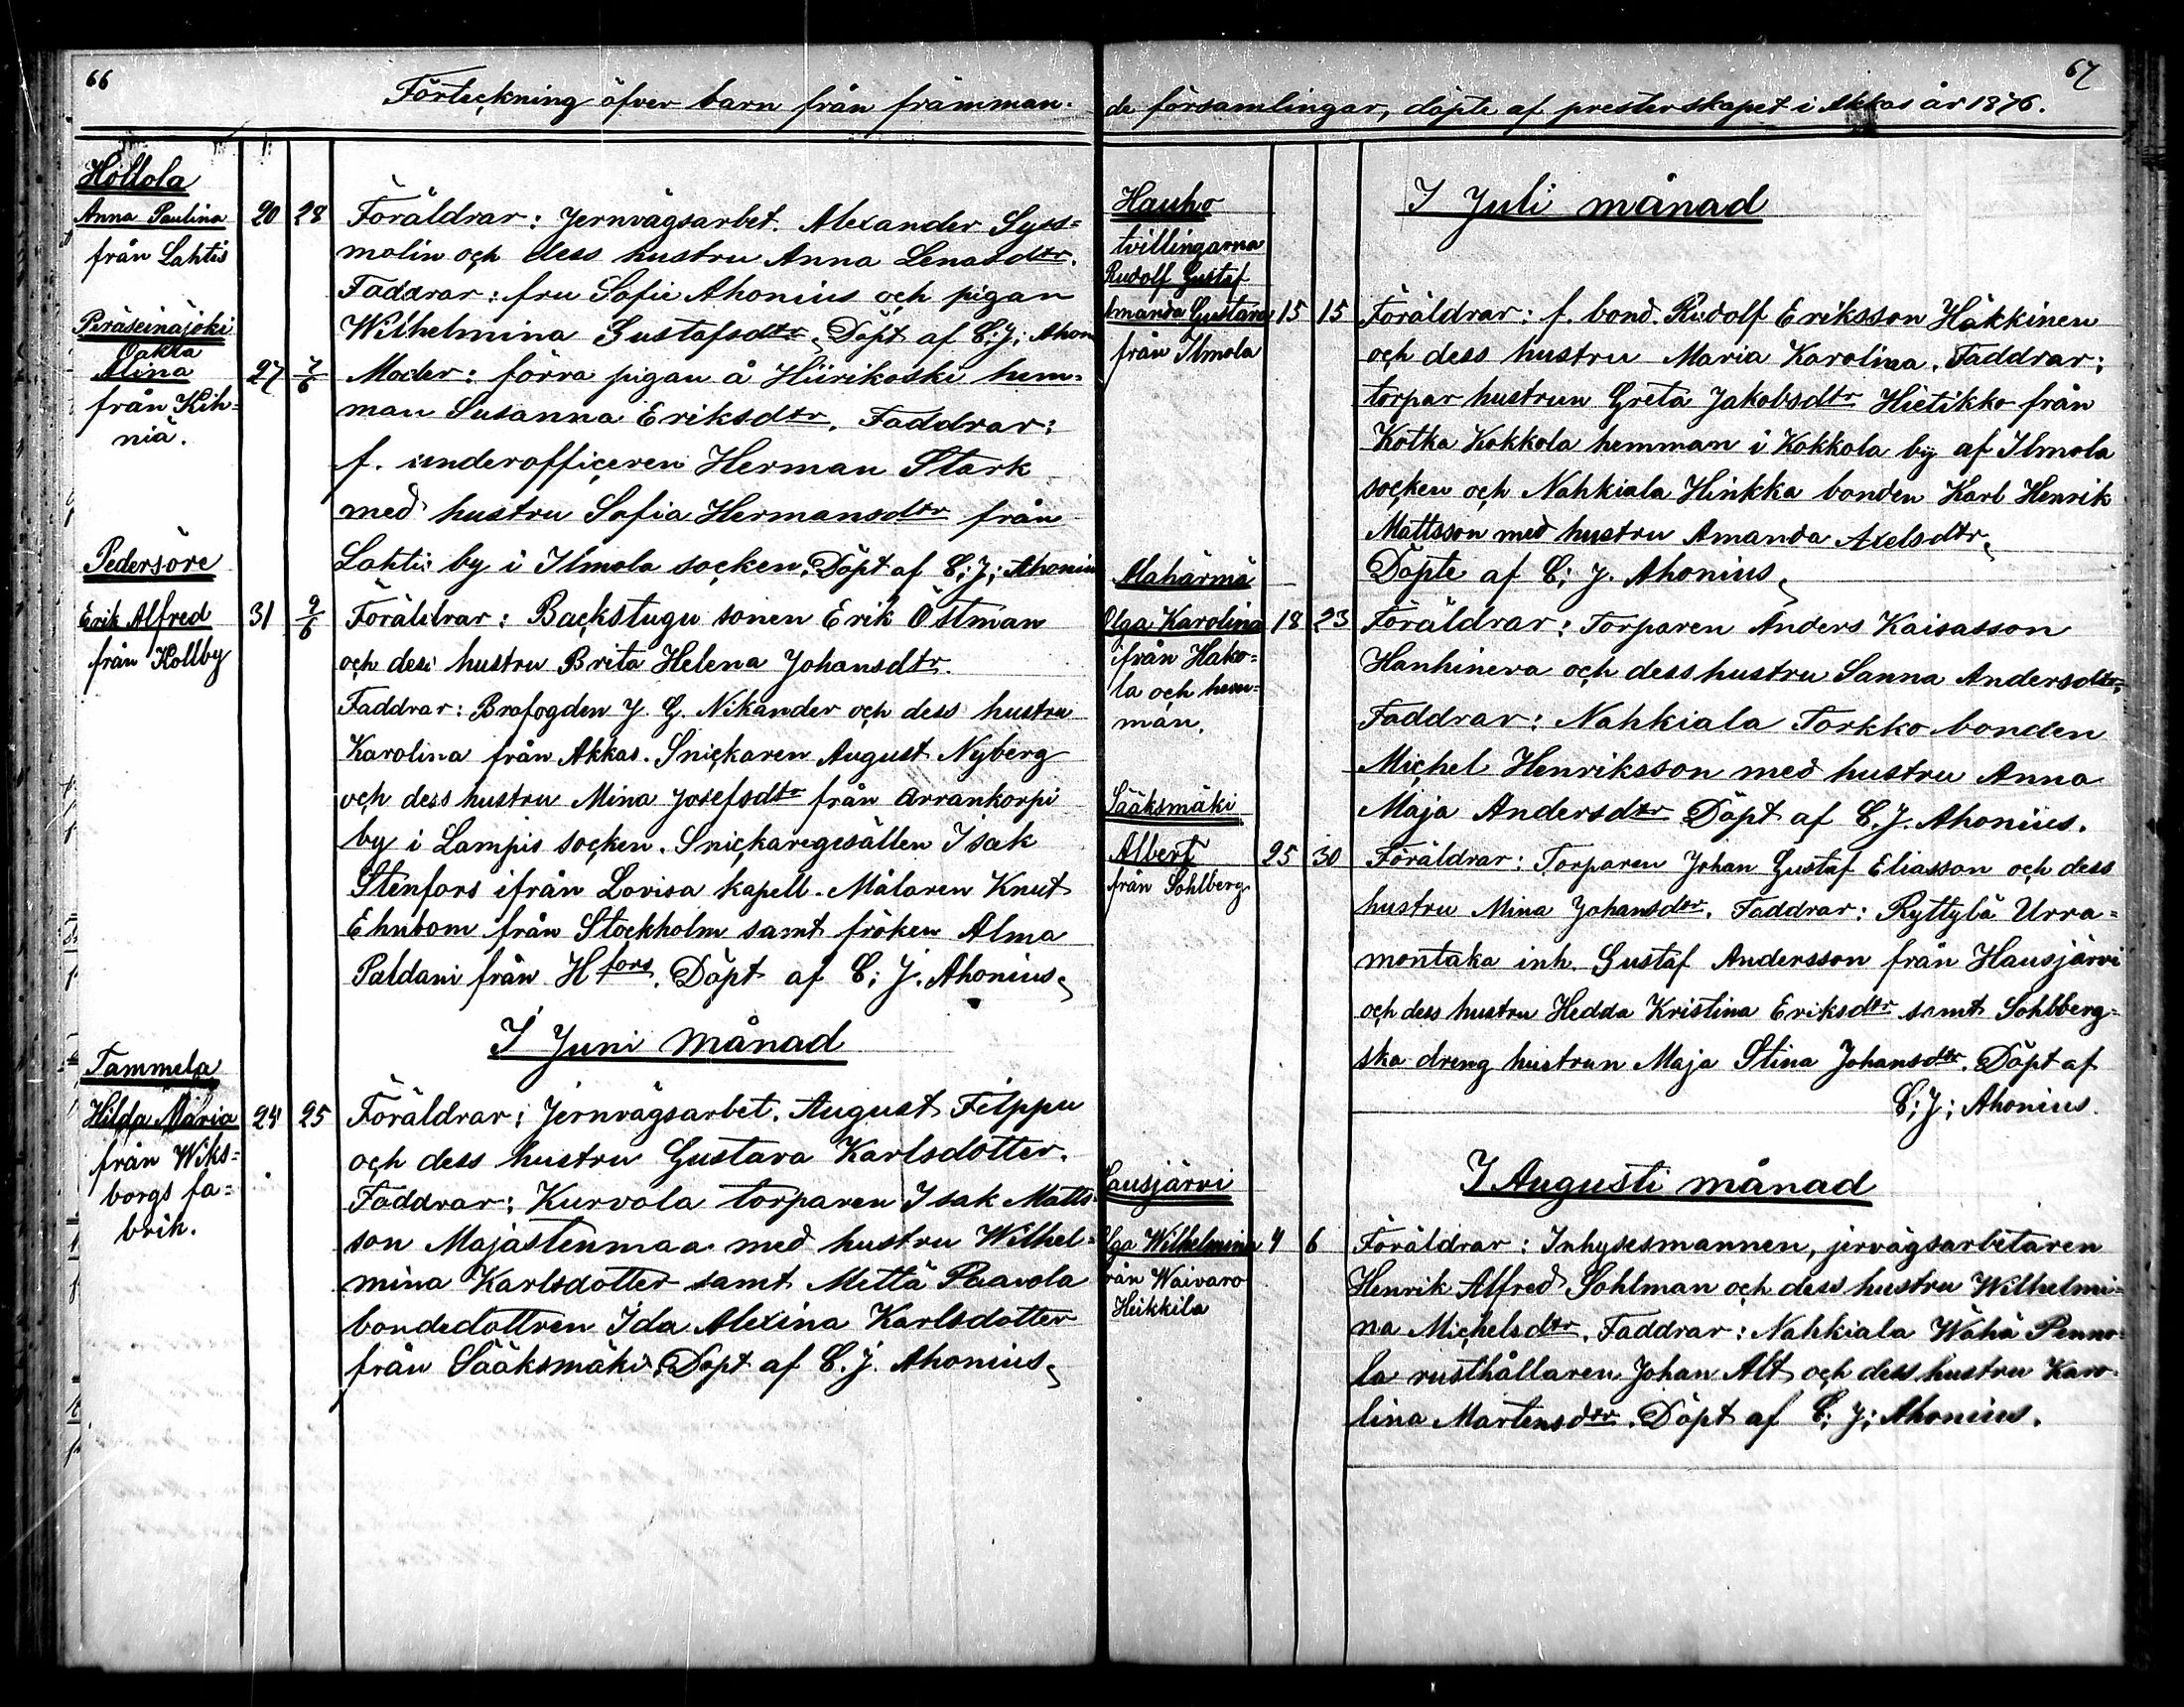 66
Förteckning öfver barn från främman-
Hollola
Anna Paulina 20 28 Föräldrar: Jernvägsarbet. Alexander Syss=
från Lahtis molin och dess hustru Anna Lenasdtr.
Faddrar: fru Sofie Ahonius och pigan
Peräseinäjoki Wilhelmina Gustafsdtr. Döpt af C; J; Ahon
Oäkta
Alina 27 7/6 Moder: förra pigan å Hiirikoski hem=
från Kih= man Susanna Eriksdtr. Faddrar:
niä.
f. underofficeren Herman Stark
med hustru Sofia Hermansdtr från
Pedersöre Lahti by i Ilmola socken. Döpt af C; J; Ahonius
Erik Alfred 31 9/6 Föräldrar: Backstugu sonen Erik Östman
från Kollby och dess hustru Brita Helena Johansdtr.
Faddrar: Brofogden J. G. Nikander och dess hustru
Karolina från Akkas. Snickaren August Nyberg
och dess hustru Mina Josefsdtr från Arrankorpi
by i Lampis socken. Snickaregesällen Isak
Stenfors ifrån Lovisa kapell. Målaren Knut
Ehnbom från Stockholm samt fröken Alma
Paldani från Hfors. Döpt af C; J. Ahonius.
I Juni månad
Tammela
Hilda Maria 24 25 Föräldrar: Jernvägsarbet. August Filppu
från Wiks= och dess hustru Gustava Karlsdotter.
borgs fa= Faddrar: Kurvola torparen Isak Matts
brik. son Majastenmaa med hustru Wilhel=
mina Karlsdotter samt Mettä Paavola
bondedottren Ida Alexina Karlsdotter
från Sääksmäki. Döpt af C. J. Ahonius.
67
de församlingar, döpte af presterskapet i Akkas år 1876.
Hauho I Juli månad
tvillingarna
Rudolf Gustaf
Amanda Gustava 15 15 Föräldrar: f. bond. Rudolf Eriksson Häkkinen
från Ilmola och dess hustru Maria Karolina. Faddrar:
torpar hustrun Greta Jakobsdtr Hietikko från
Kotka Kokkola hemman i Kokkola by af Ilmola
socken och Nahkiala Hinkka bonden Karl Henrik
Mattsson med hustru Amanda Axelsdtr.
Alahärmä Döpte af C; J. Ahonius.
Olga Karolina 18 23 Föräldrar: Torparen Anders Kaisasson
ifrån Hako= Hanhineva och dess hustru Sanna Andersdtr.
la och hem=
man. Faddrar: Nahkiala Torkko bonden
Michel Henriksson med hustru Anna
Sääksmäki Maja Andersdtr Döpt af C. J. Ahonius.
Albert 25 30 Föräldrar: Torparen Johan Gustaf Eliasson och dess
från Sohlberg hustru Mina Johansdtr. Faddrar: Ryttylä Urra=
montaka inh. Gustaf Andersson från Hausjärvi
och dess hustru Hedda Kristina Eriksdtr samt Sohlberg=
ska dreng hustrun Maja Stina Johansdtr. Döpt af
C; J; Ahonius.
Hausjärvi I Augusti månad
Olga Wilhelmina 4 6 Föräldrar: Inhysesmannen, jervägsarbetaren
från Waivaro Henrik Alfred Sohlman och dess hustru Wilhelmi=
Heikkila na Michelsdtr. Faddrar: Nahkiala Wähä Penno=
la rusthållaren Johan Alt och dess hustru Karo=
lina Martensdtr. Döpt af C; J; Ahonius.